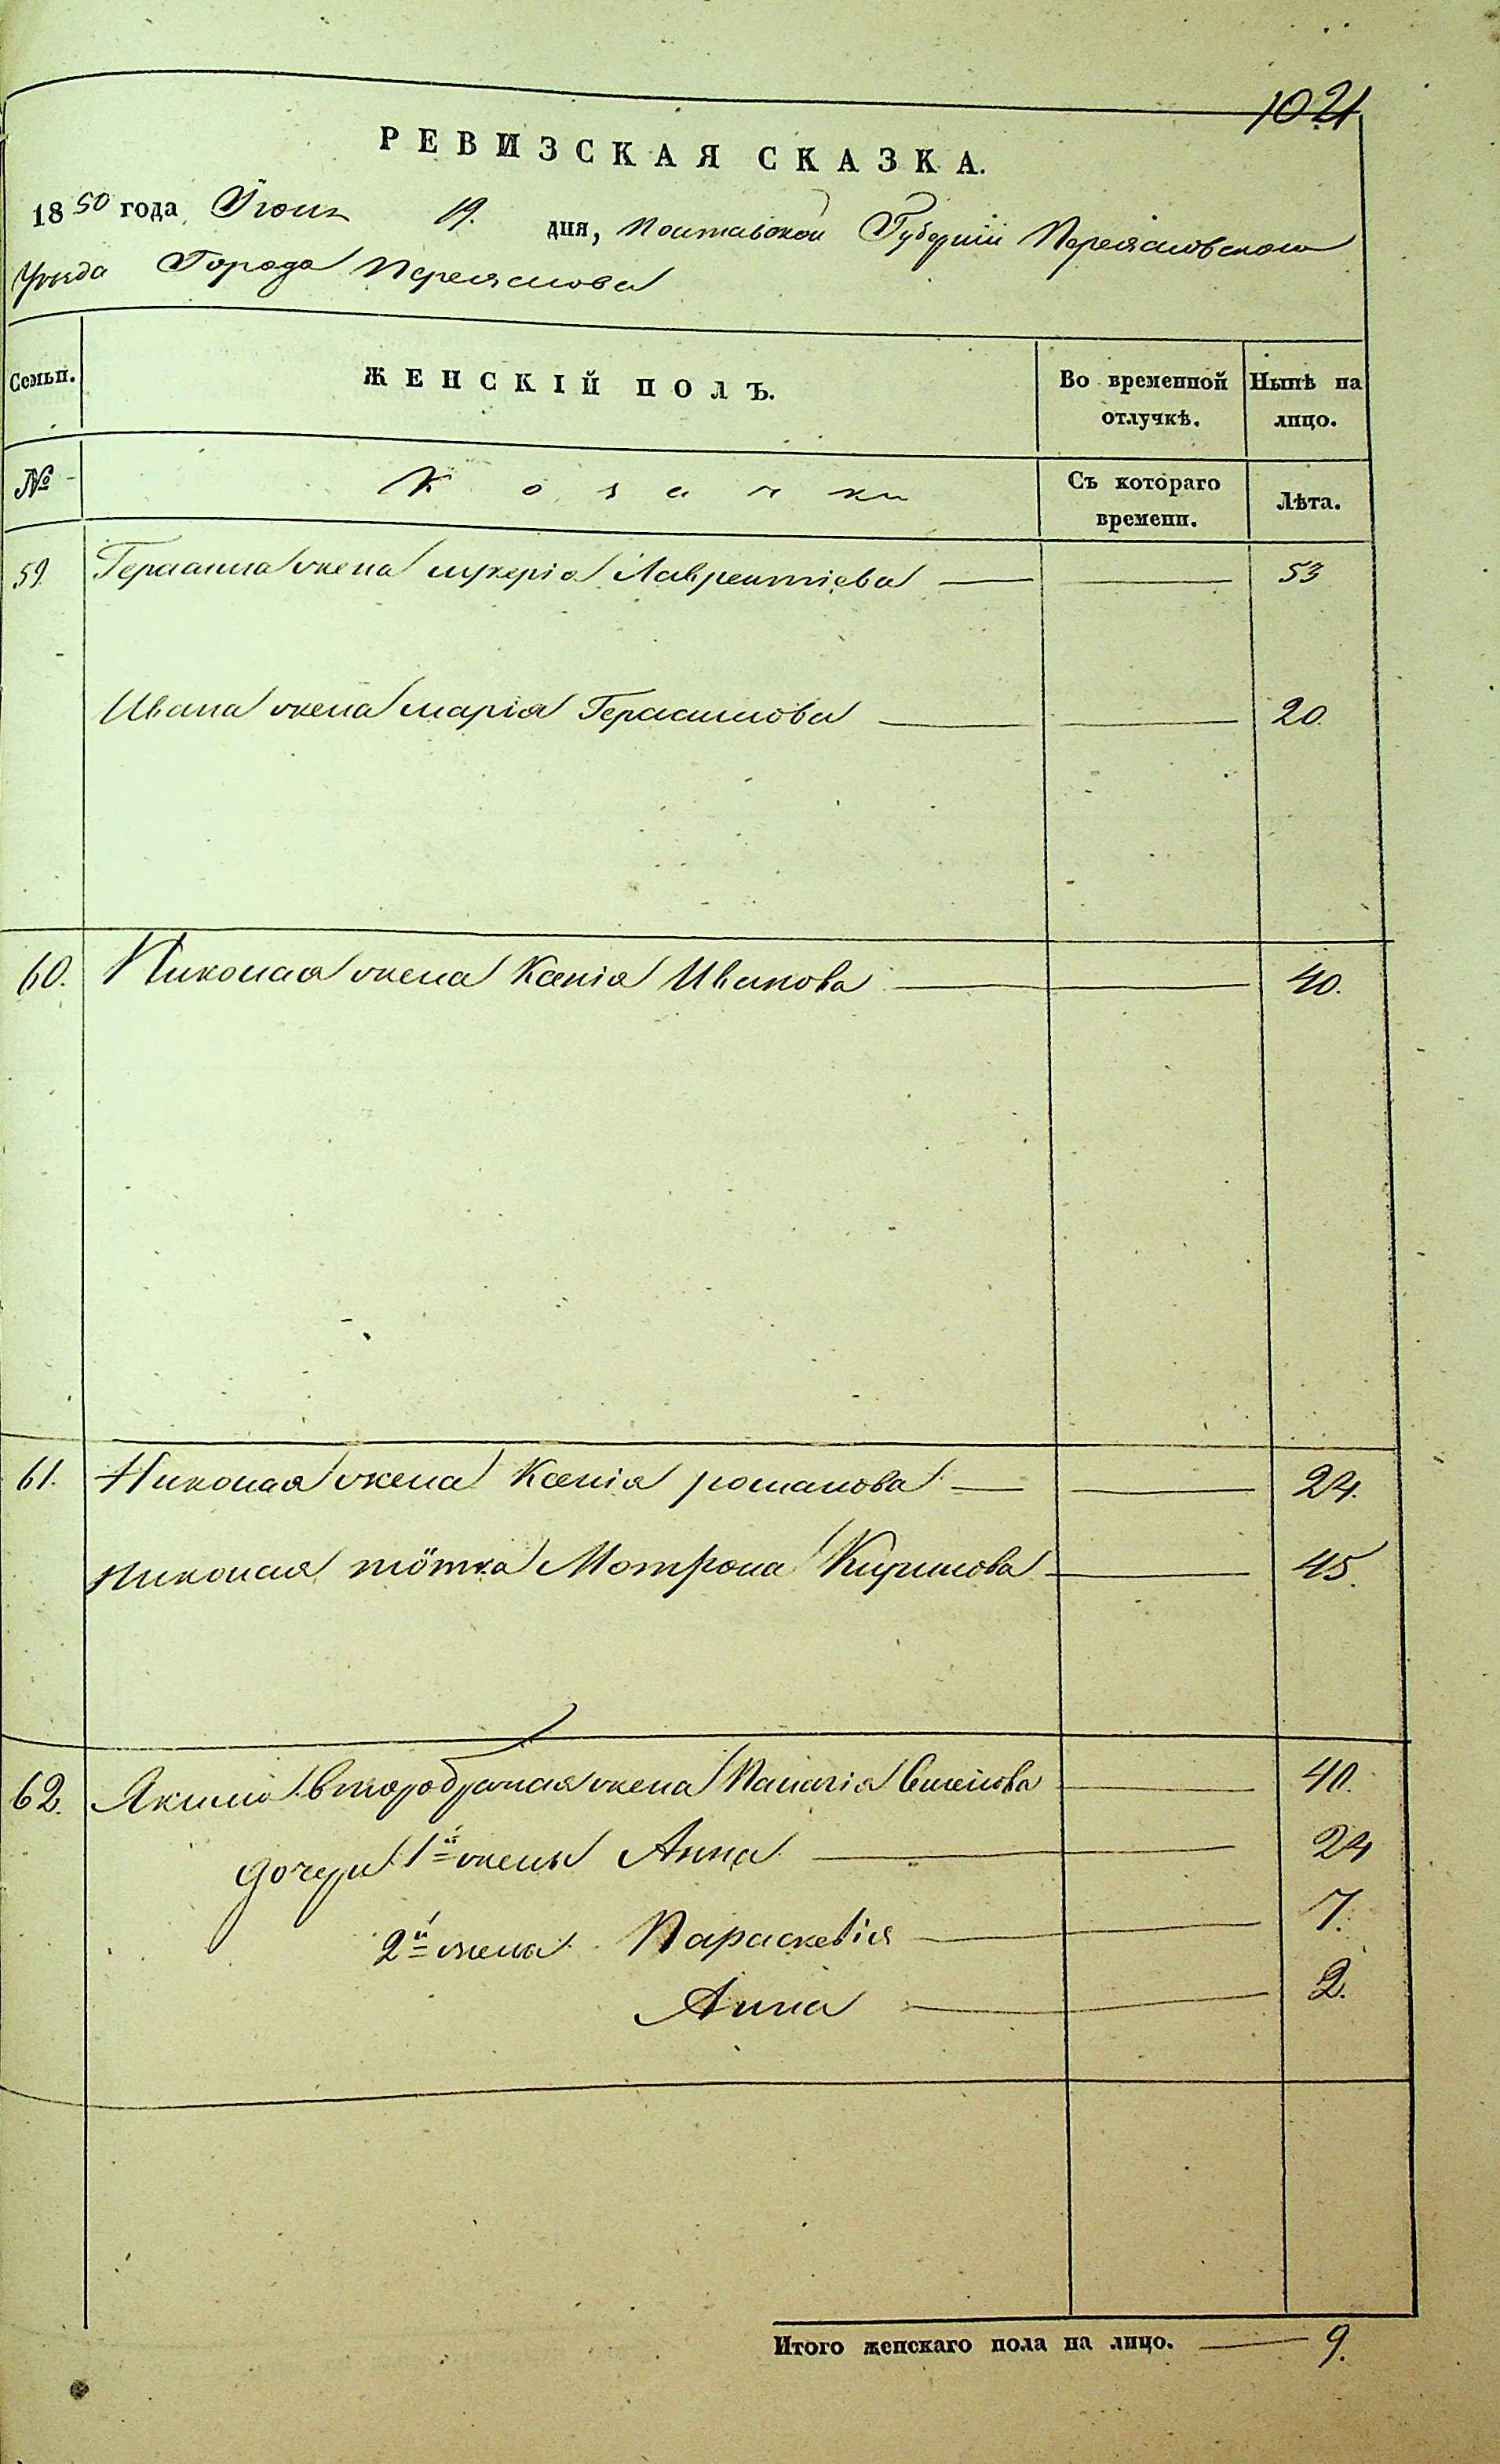 1021
РЕВИЗСКАЯ СКАЗКА.
1850 года Іюня 19. дня, Полтавской Губерніи Переяславского
Уѣзда Города Переяслова
Семьи. ЖЕНСКІЙ ПОЛЪ. Во временной отлучкѣ. Нынѣ на лицо.
№ Козачки Съ котораго времени. Лѣта.
59. Герасима жена Лукерія Лаврентіева 53
Ивана жена Марія Герасимова 20.
60. Николая жена Ксенія Иванова 40.
61. Николая жена Ксенія Романова 24.
Николая тётка Мотрона Кирилова 45.
62. Якима второбрачная жена Палагія 40.
дочери 1й жены Анна 24
2й жены Параскевія 7.
Анна 2.
Итого женскаго пола на лицо. 9.